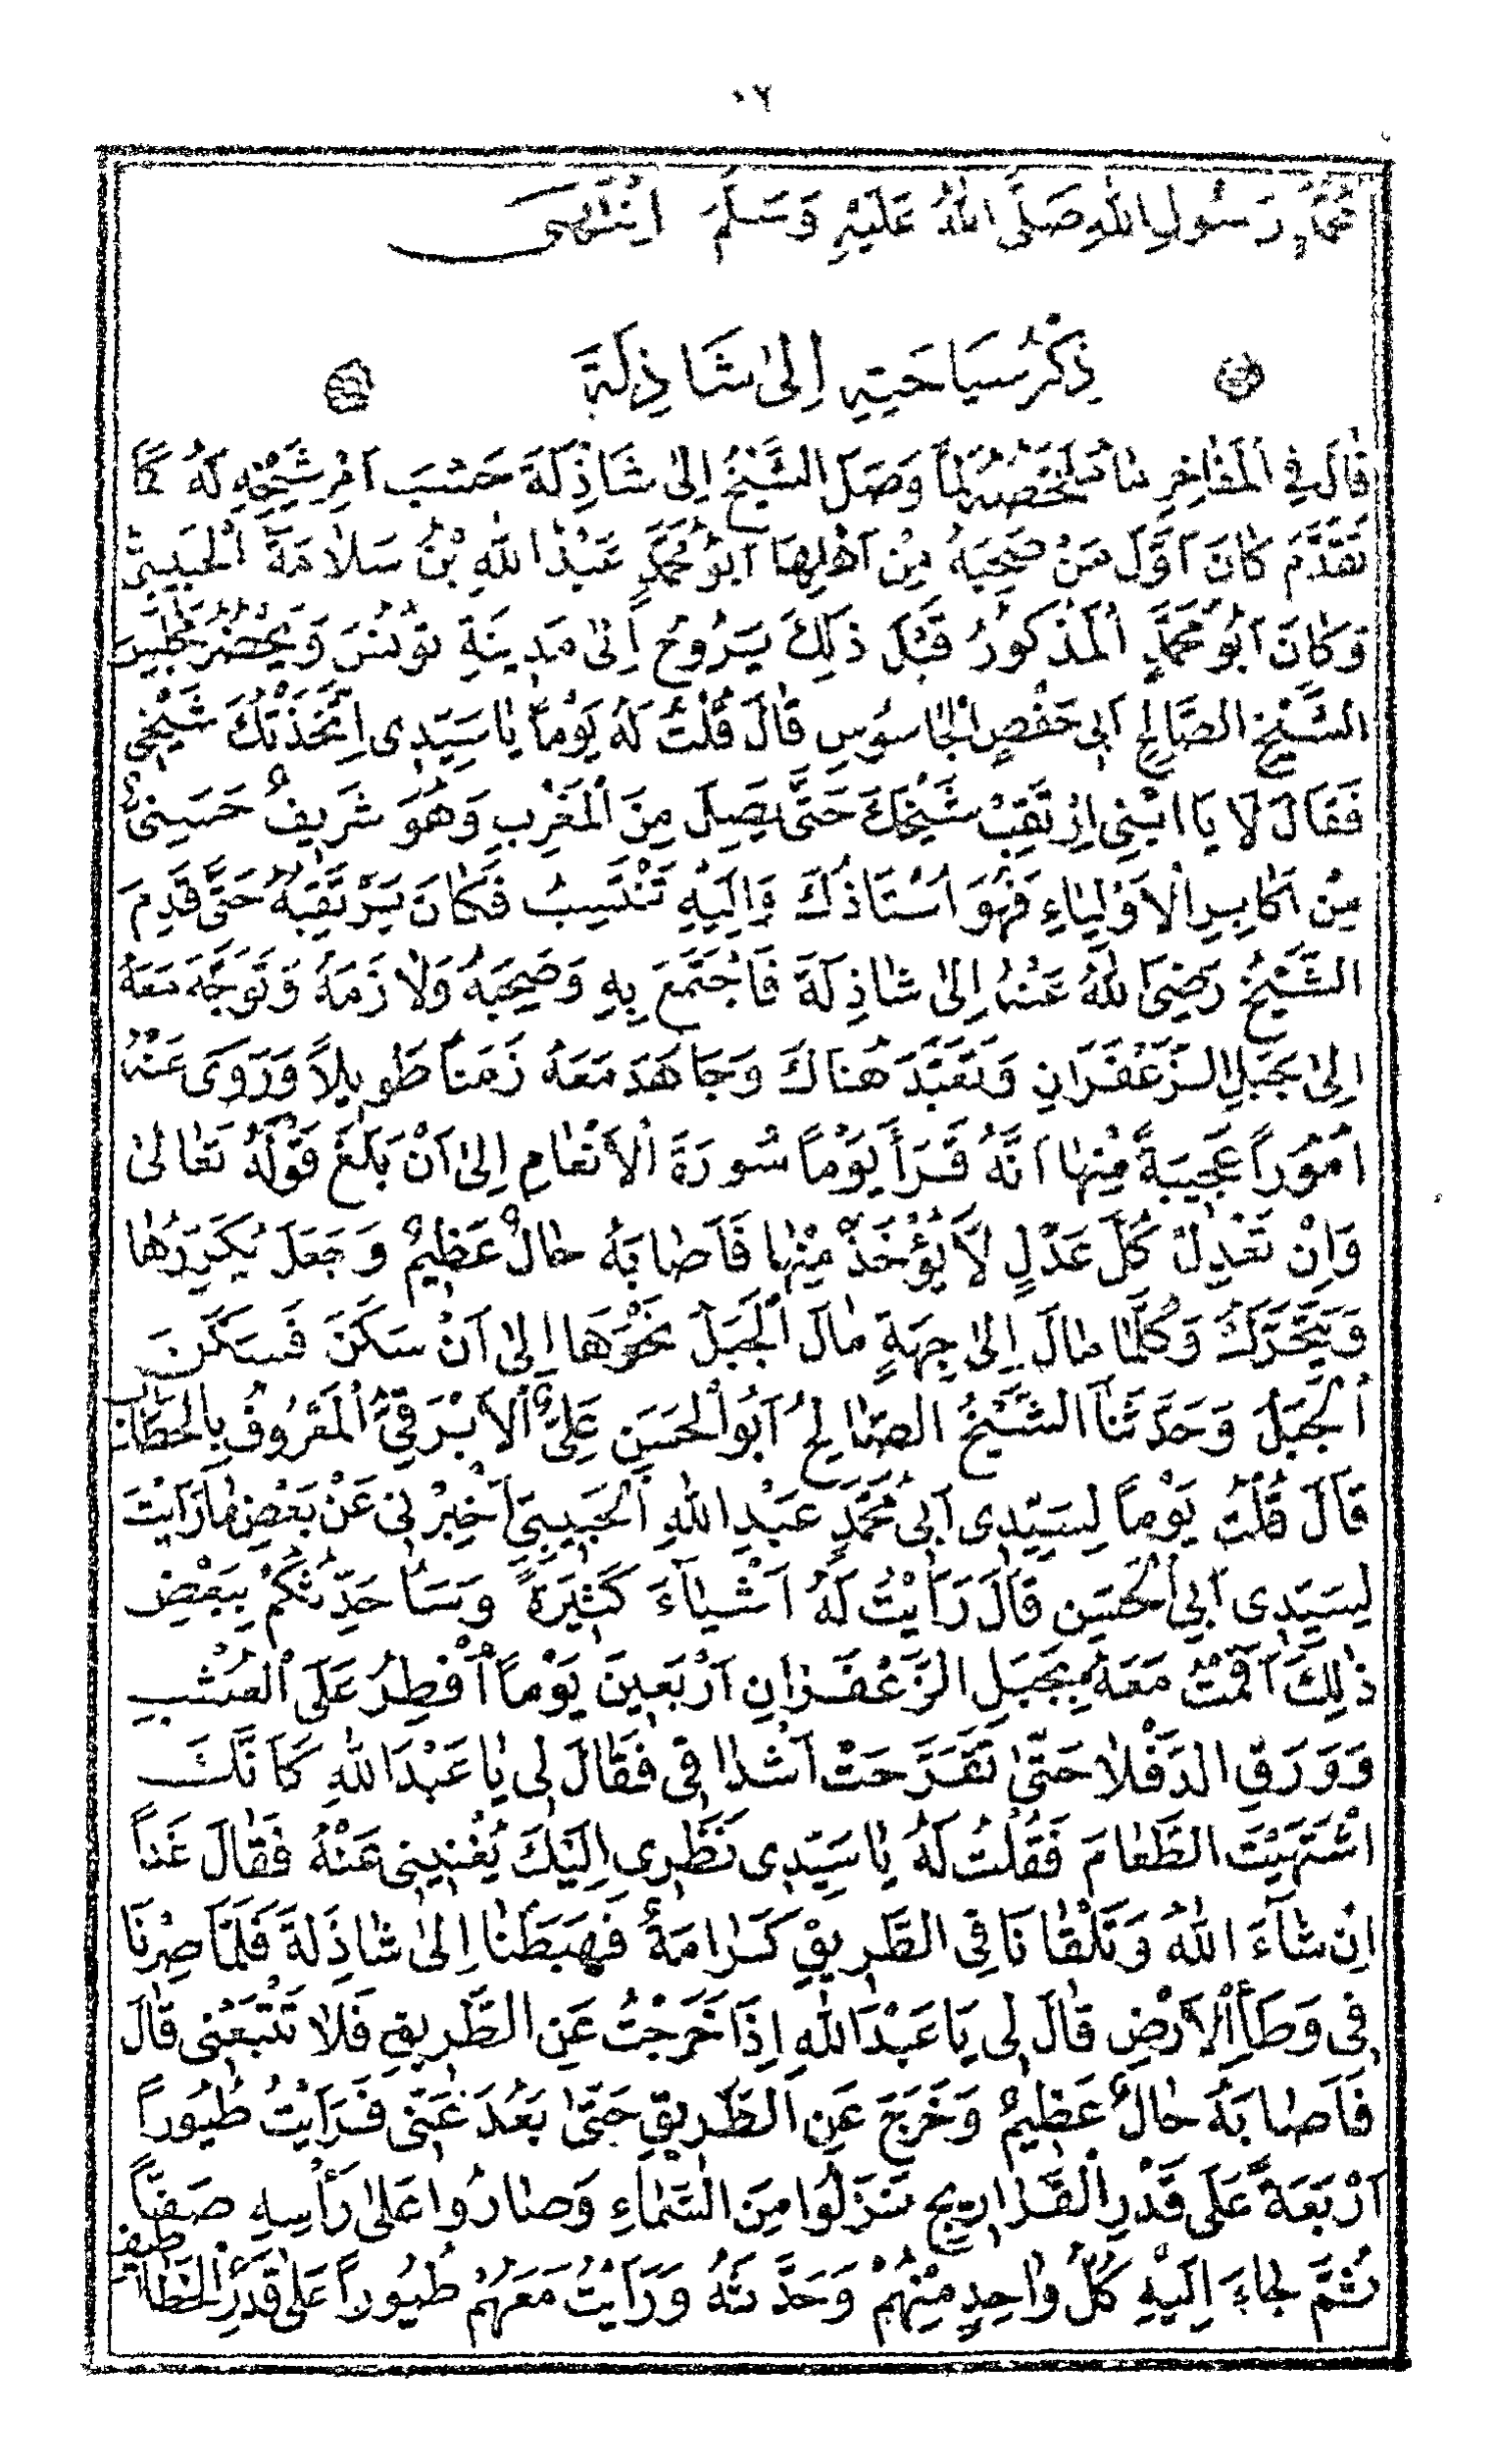 ٠٢
مُحَمَّدٍ رَسُولِ اللهِ صَلَّى اللهُ عَلَيْهِ وَسَلَّمَ اِنْتَهٰى
ذِكْرُ سِيَاحَتِهِ اِلىٰ شَاذِلَةَ
قٰالَ فِى الْمَفٰاخِرِ مٰا مُلَخَّصُهُ لَمَّا وَصَلَ الشَّيْخُ اِلىٰ شَاذِلَةَ حَسْبَ اَمْرِ شَيْخِهِ لَهُ كَمَا
تَقَدَّمَ كٰانَ اَوَّلَ مَنْ صَحِبَهُ مِنْ اَهْلِهَا اَبُو مُحَمَّدٍ عَبْدُ اللهِ بْنُ سَلاٰمَةَ الْحَبِيبِىُّ
وَكٰانَ اَبُو مُحَمَّدٍ الْمَذْكُورُ قَبْلَ ذٰلِكَ يَرُوحُ اِلىٰ مَدِينَةِ تُونُسَ وَيَحْضُرُ مَجْلِسَ
الشَّيْخِ الصَّالِحِ اَبِى حَفْصٍ الْجَاسُوسِ قٰالَ قُلْتُ لَهُ يَوْماً يٰا سَيِّدِى اِتَّخَذْتُكَ شَيْخِى
فَقَالَ لَا يَا ابْنِى اِرْتَقِبْ شَيْخَكَ حَتَّى يَصِلَ مِنَ الْمَغْرِبِ وَهُوَ شَرِيفٌ حَسَنِىٌّ
مِنْ اَكَابِرِ الْاَوْلِيٰاءِ فَهُوَ اُسْتَاذُكَ وَاِلَيْهِ تَنْتَسِبُ فَكَانَ يَرْتَقِبُهُ حَتَّى قَدِمَ
الشَّيْخُ رَضِىَ اللهُ عَنْهُ اِلىٰ شٰاذِلَةَ فَاجْتَمَعَ بِهِ وَصَحِبَهُ وَلاٰزَمَهُ وَتَوَجَّهَ مَعَهُ
اِلىٰ جَبَلِ الزَّعْفَرَانِ وَتَعَبَّدَ هُنَاكَ وَجَاهَدَ مَعَهُ زَمَناً طَوِيلاً وَرَوَى عَنْهُ
اُمُوراً عَجِيبَةً مِنْهٰا اَنَّهُ قَرَأَ يَوْماً سُورَةَ الْاَنْعٰامِ اِلىٰ اَنْ بَلَغَ قَوْلَهُ تَعٰالىٰ
وَاِنْ تَعْدِلْ كُلَّ عَدْلٍ لَا يُؤْخَذْ مِنْهٰا فَاَصٰابَهُ حٰالٌ عَظِيمٌ وَجَعَلَ يُكَرِّرُهٰا
وَيَتَحَرَّكُ وَكُلَّمٰا مٰالَ اِلىٰ جِهَةٍ مٰالَ الْجَبَلُ نَحْوَهَا اِلىٰ اَنْ سَكَنَ فَسَكَنَ
الْجَبَلُ وَحَدَّثَنَا الشَّيْخُ الصّٰالِحُ اَبُو الْحَسَنِ عَلِىٌّ الْاَبْرَقِىُّ الْمَعْرُوفُ بِالْحَطَّابِ
قَالَ قُلْتُ يَوْماً لِسَيِّدِى اَبِى مُحَمَّدٍ عَبْدِ اللهِ الْحَبِيبِىِّ اَخْبِرْنِى عَنْ بَعْضِ مٰا رَاَيْتَ
لِسَيِّدِى اَبِى الْحَسَنِ قٰالَ رَاَيْتُ لَهُ اَشْيٰآءَ كَثِيرَةً وَسَاُحَدِّثُكُمْ بِبَعْضِ
ذٰلِكَ اَقَمْتُ مَعَهُ بِجَبَلِ الزَّعْفَرٰانِ اَرْبَعِينَ يَوْماً اُفْطِرُ عَلَى الْعُشْبِ
وَوَرَقِ الدَّفْلاٰ حَتّىٰ تَقَرَّحَتْ اَشْدٰاقِى فَقٰالَ لِى يٰا عَبْدَ اللهِ كَاَنَّكَ
اشْتَهَيْتَ الطَّعٰامَ فَقُلْتُ لَهُ يٰا سَيِّدِى نَظَرِى اِلَيْكَ يُغْنِينِى عَنْهُ فَقٰالَ غَداً
اِنْ شٰآءَ اللهُ وَتَلْقٰانَا فِى الطَّرِيقِ كَرٰامَةٌ فَهَبَطْنٰا اِلىٰ شٰاذِلَةَ فَلَمَّا صِرْنَا
فِى وَطَأِ الْاَرْضِ قٰالَ لِى يَا عَبْدَ اللهِ اِذَا خَرَجْتُ عَنِ الطَّرِيقِ فَلاٰ تَتْبَعْنِى قٰالَ
فَاَصٰابَهُ حٰالٌ عَظِيمٌ وَخَرَجَ عَنِ الطَّرِيقِ حَتّىٰ بَعُدَ عَنِّى فَرَاَيْتُ طُيُوراً
اَرْبَعَةً عَلَى قَدْرِ الْقَرٰارِيجِ نَزَلُوا مِنَ السَّمٰاءِ وَصٰارُوا عَلىٰ رَأْسِهِ صَفّاً
ثُمَّ جٰاءَ اِلَيْهِ كُلُّ وٰاحِدٍ مِنْهُمْ وَحَدَّثَهُ وَرَاَيْتُ مَعَهُمْ طُيُوراً عَلىٰ قَدْرِ الْخَطٰاطِيفِ